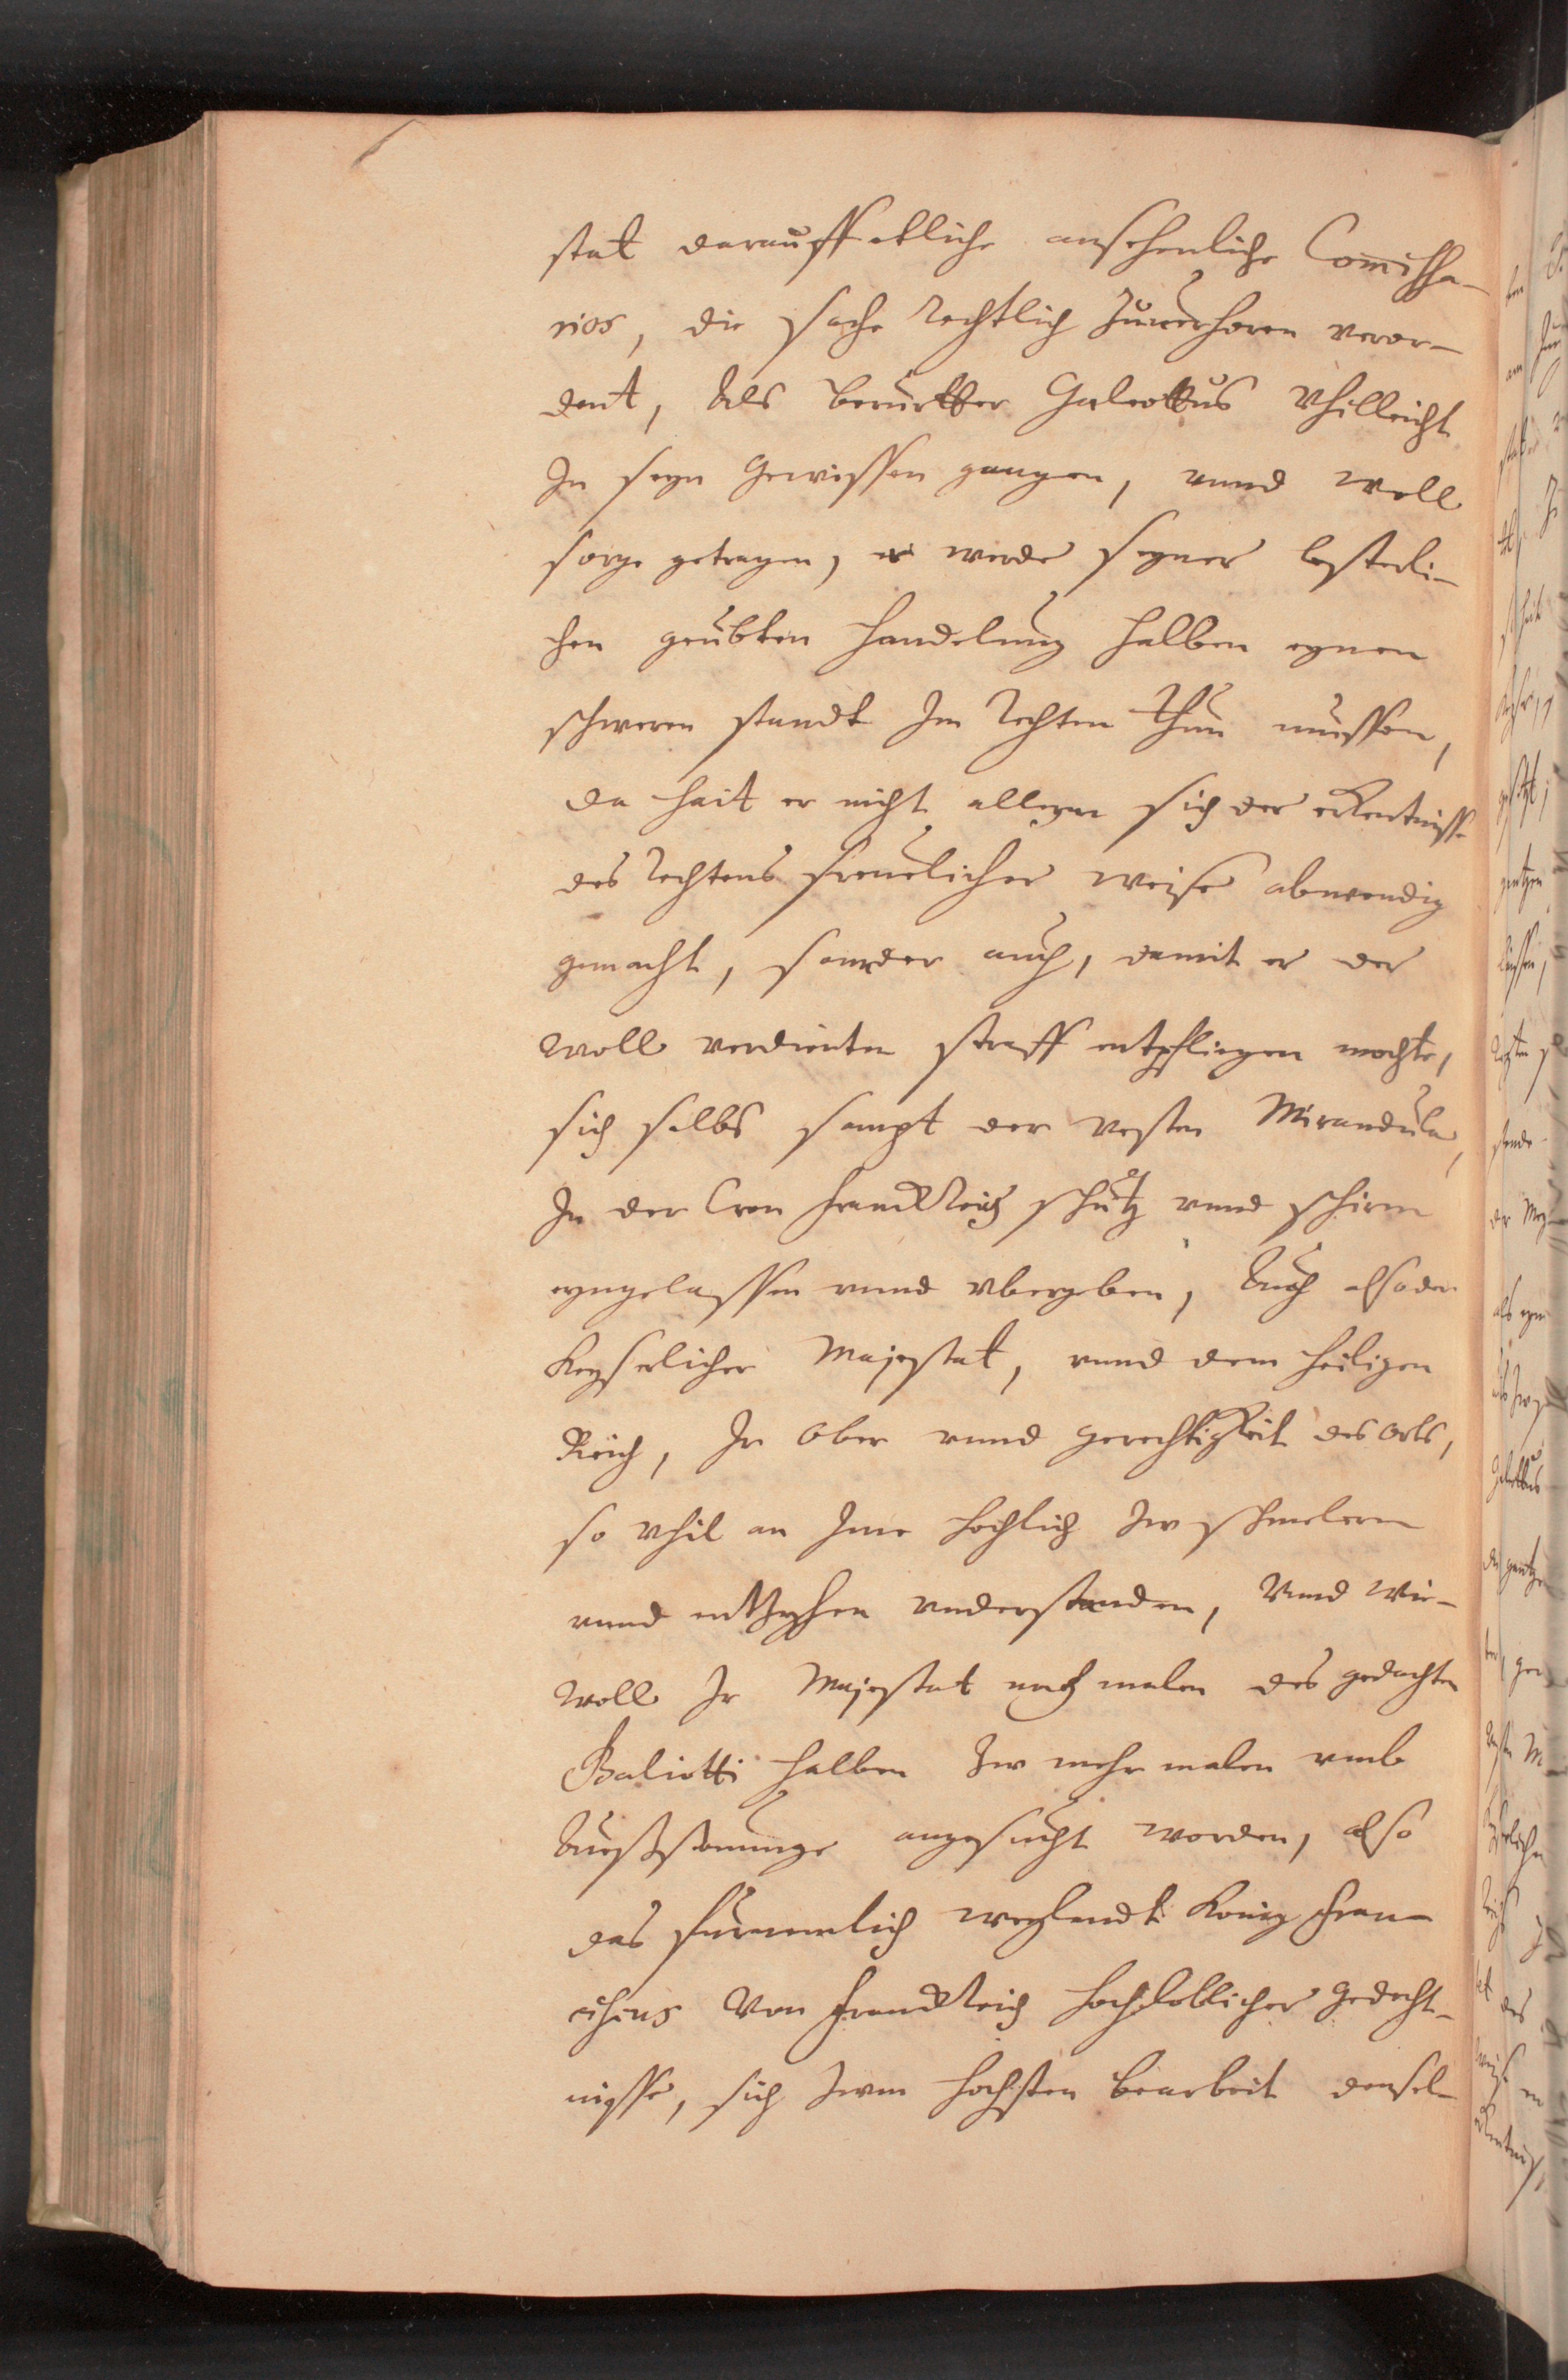 stat darauff etliche ansehenliche Com̄issa-
rios, die sache Rechtlich Zuuerhoren veror-
dent, Als beruerter Galeottus Vhilleicht
In seyn Gewissen gangen, vnnd woll
sorge getragen, er werde seyner lesterli-
chen geubten handelung halben eynen
schweren standt Im Rechten thun muessen,
da hait er nicht alleyn sich der erkentnisse
des Rechtens freuelicher weise abwendig
gemacht, sonder auch, damit er der
woll verdienten straff entpfliegen mochte,
sich selbs sampt der vesten Mirandula,
In der Cron franckReich schutz vnnd schirm
eyngelassen vnnd vbergeben, Auch also der
Keyserlicher Majestat, vnnd dem heiligen
Reich, Ir Ober vnnd gerechtigkeit des orts,
so vhil an Ime hochlich zw schmelern
vnnd entzyhen vnderstanden, Vnnd wie-
woll Ir Majestat nach malen des gedachten
Galiotti halben zw mehr malen vmb
Aussonunge angesucht worden, also
das furnemlich weylandt Konig Fran-
ciscus von franckReich hochloblicher gedecht-
nisse, sich zwm hochsten bearbeit densel-